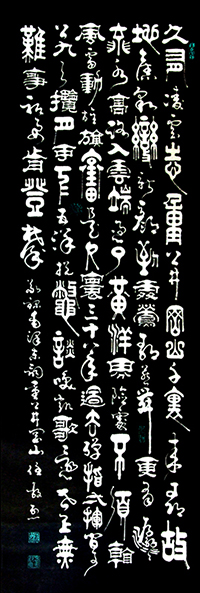 久有凌雲志重上井岡山千里來尋故
地舊貌變新顏到處鶯歌燕舞更有潺潺
流水高路入雲端過了黃洋界險處不須看
風雷動旌旗奮是人寰三十八年過去彈指一揮間可上
九天攬月可下五洋捉鱉談笑凱歌還世上無
難事只要肯登攀 錄毛澤東詞重上井岡山